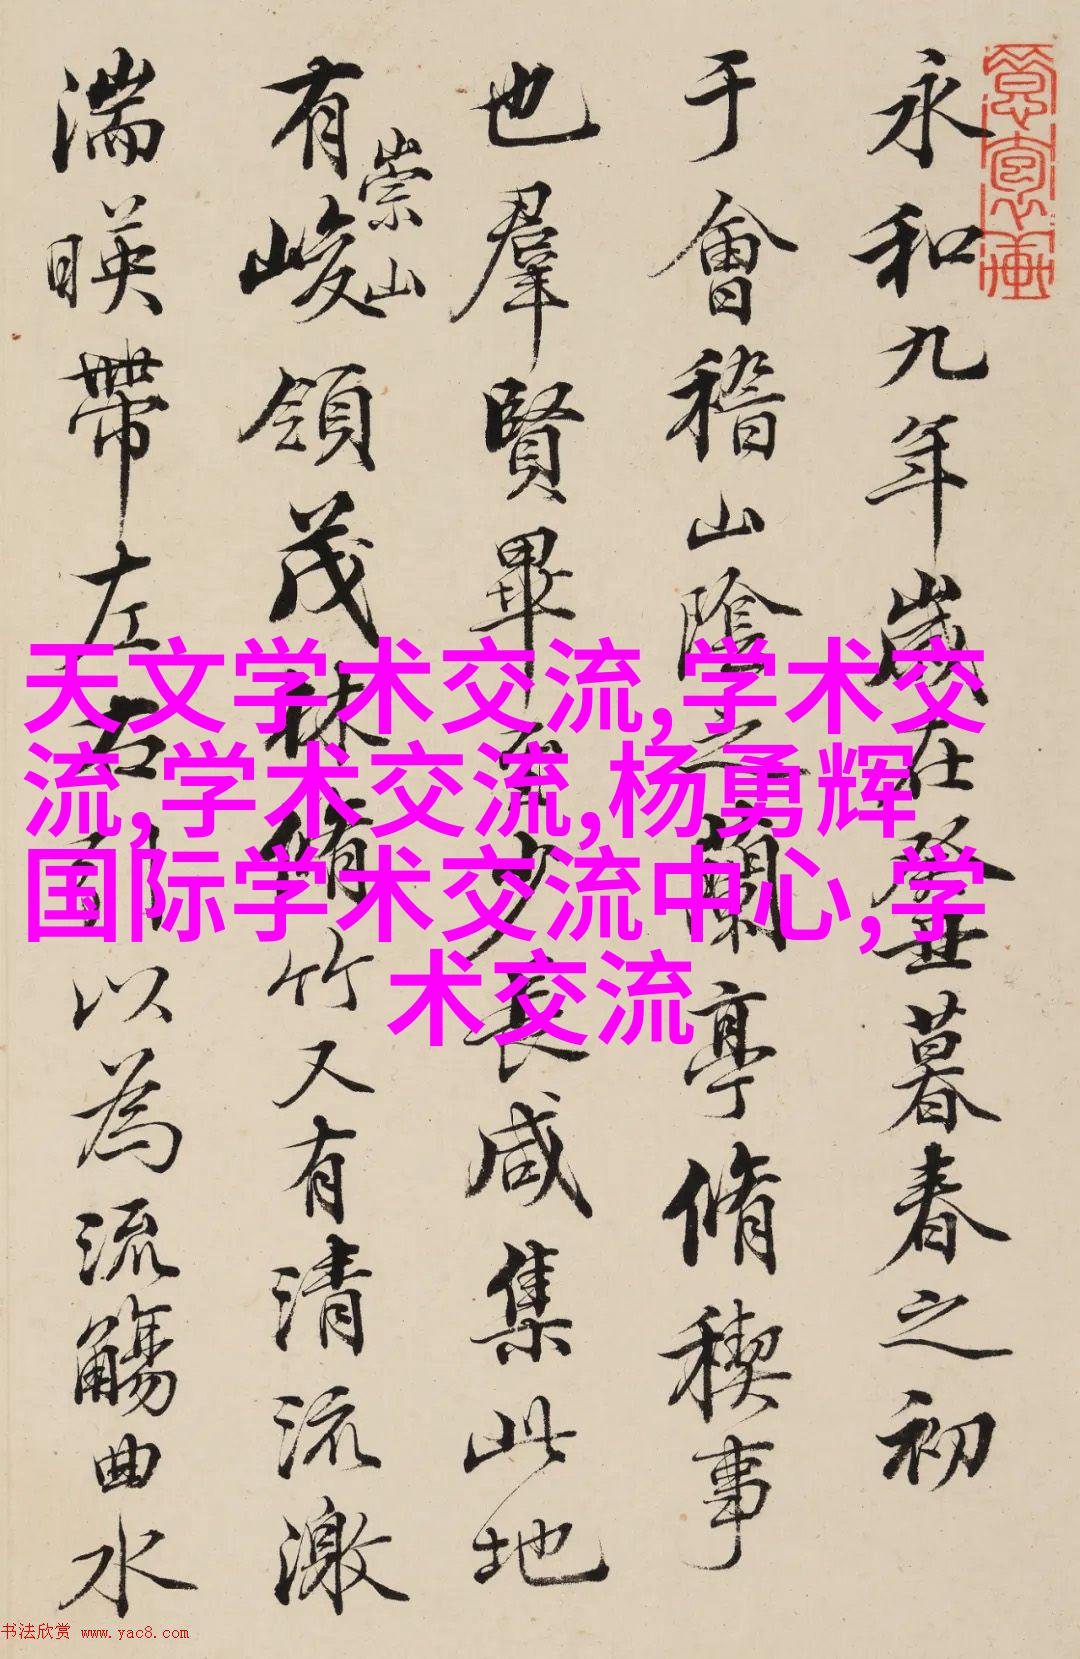 永和九年歲在癸丑暮春之初
于會稽山陰之蘭亭脩稧事
也羣賢畢至少長咸集此地
有崇山峻領茂林脩竹又有清流激
湍暎帶左右引以為流觴曲水
天文学术交流,学术交
流,学术交流,杨勇辉
国际学术交流中心,学
术交流
书法欣赏 www.yac8.com